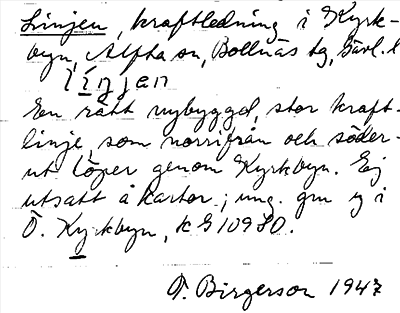 Linjen, kraftledning i Kyrk-
byn, Alfta sn, Bollnäs tg, Gävl. l
lìnjen
En rätt nybyggd, stor kraft-
linje, som norrifrån och söder-
ut löper genom Kyrkbyn. Ej
utsatt å kartor; ung. gm y i
Ö. Kyrkbyn, k G 109 SO.
T. Birgerson 1947